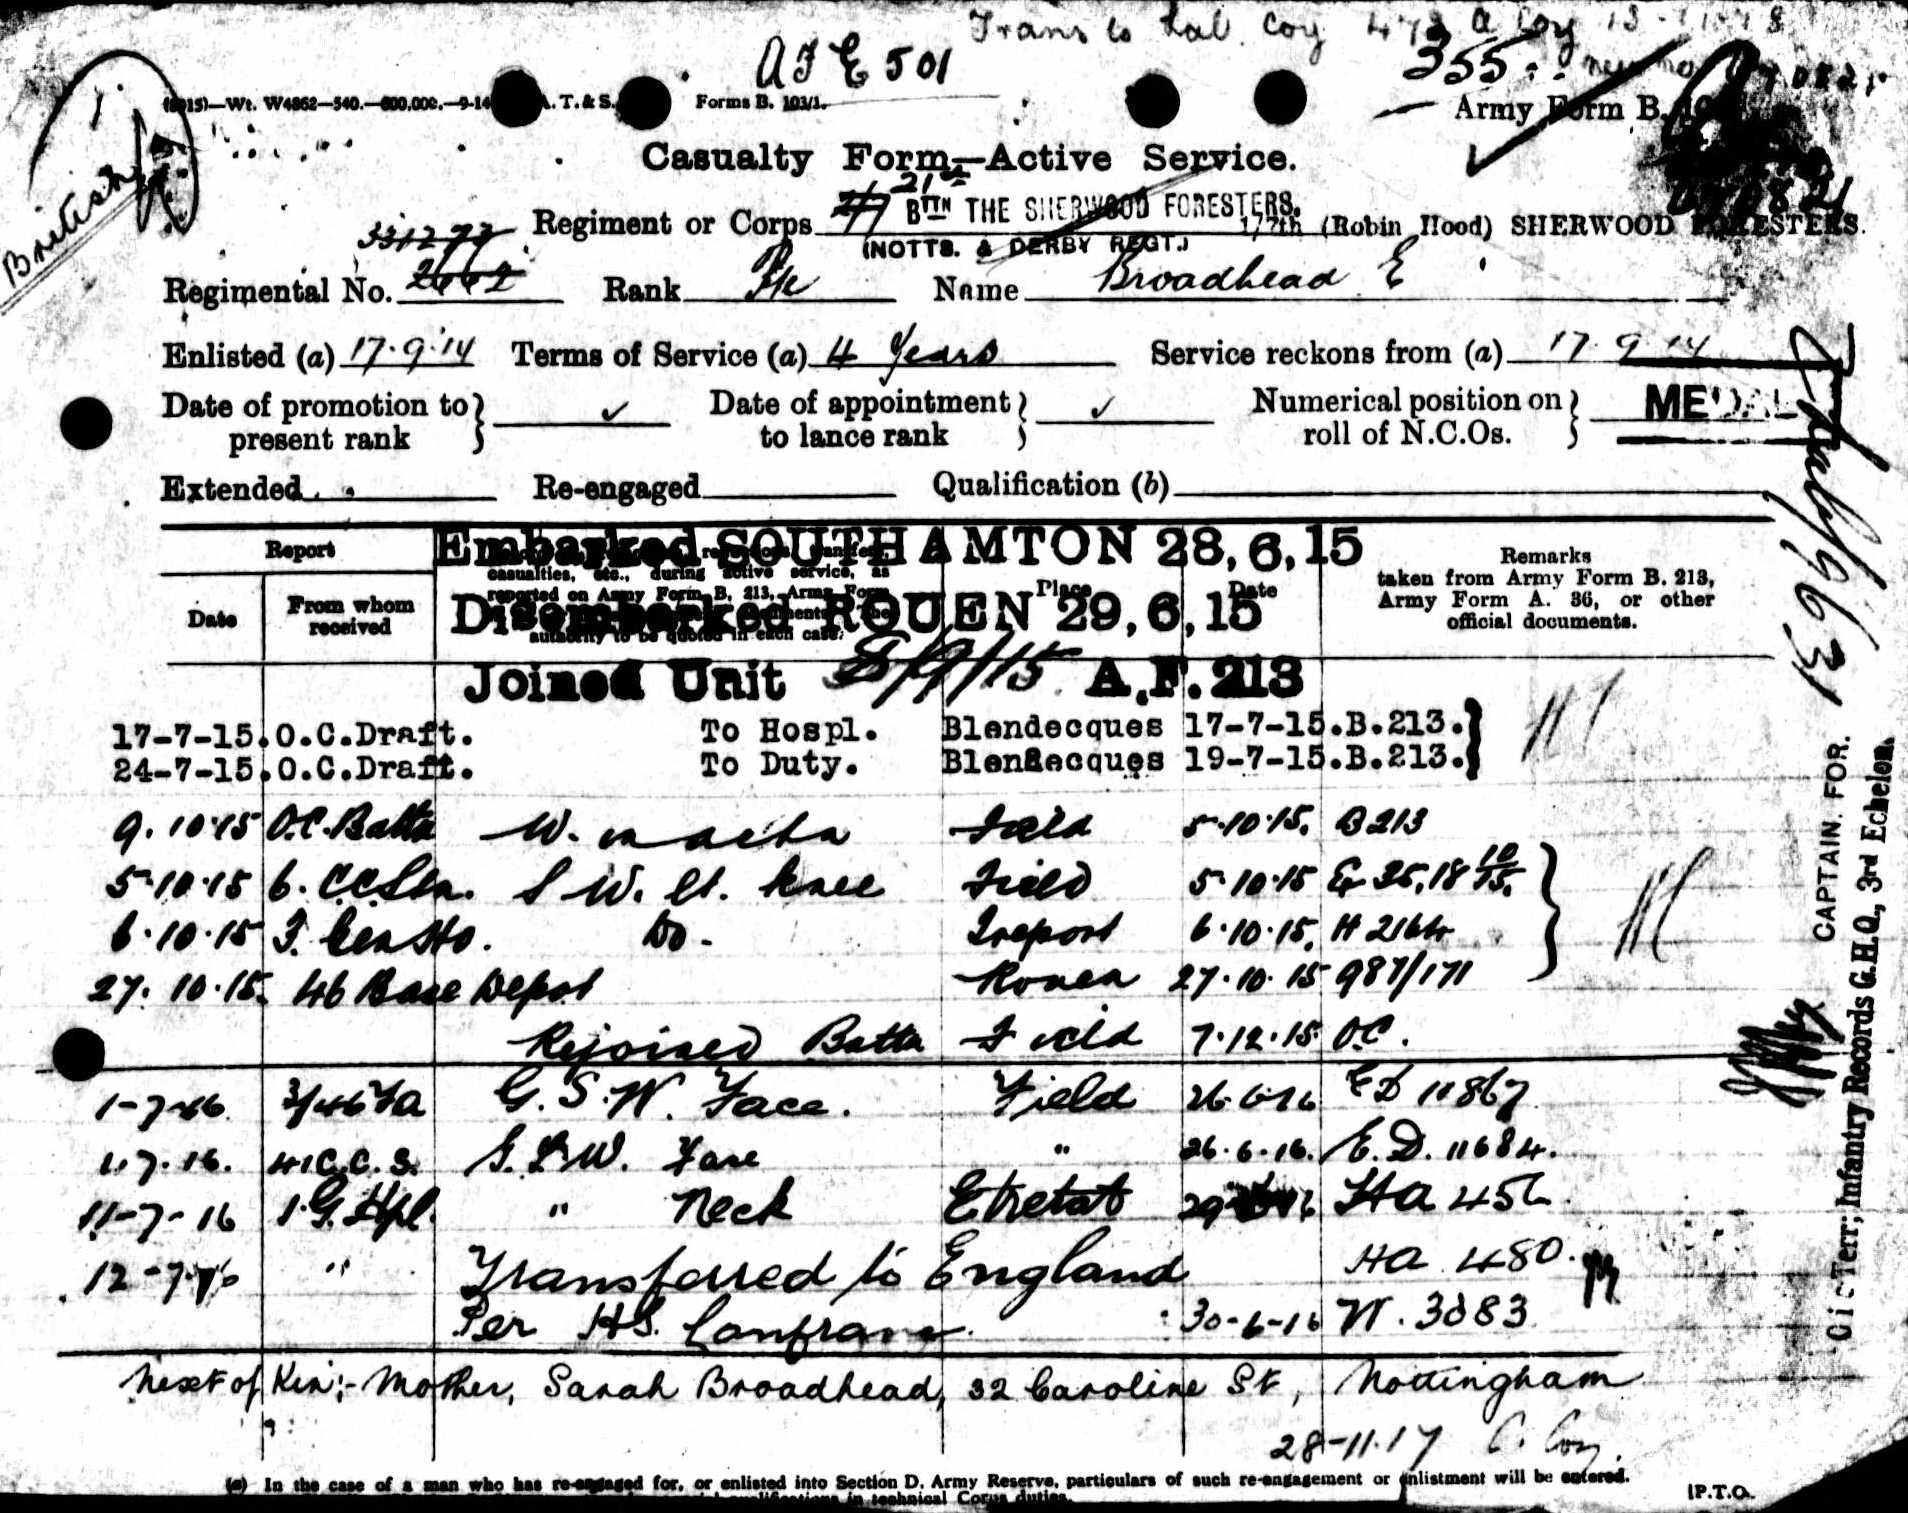 Trans to Lab. Coy
A F E 501
355
(6015)—Wt. W4862—540.—500,000.—9-14 A.T.&S. Forms B. 103/1.
Army Form B.
Casualty Form—Active Service.
British
21st
Regiment or Corps BTTN THE SHERWOOD FORESTERS. 1/7th (Robin Hood) SHERWOOD FORESTERS.
(NOTTS. & DERBY REGT.)
331277
Regimental No. 2662 Rank Pte Name Broadhead E
Enlisted (a) 17.9.14 Terms of Service (a) 4 Years Service reckons from (a) 17 9 14
Date of promotion to present rank ✓ Date of appointment to lance rank ✓ Numerical position on roll of N.C.Os. MEDAL
Extended Re-engaged Qualification (b)
Embarked SOUTHAMTON 28,6,15
Report
Date
From whom received
casualties, etc., during active service, as
reported on Army Form B. 213, Army Form
authority to be quoted in each case.
Place
Date
Remarks
taken from Army Form B. 213,
Army Form A. 36, or other
official documents.
Disembarked ROUEN 29,6,15
Joined Unit A.F.213
17-7-15. O.C.Draft. To Hospl. Blendecques 17-7-15. B.213.
24-7-15. O.C.Draft. To Duty. Blendecques 19-7-15. B.213.
9.10.15 O.C. Battn W. in actn Field 5.10.15. B213
5.10.15 6. C.C.Stn. S W. lt. knee Field 5.10.15
6.10.15 Do. Treport 6.10.15. H 2164
27.10.15. 46 Base Depot Rouen 27.10.15 987/171
Rejoined Battn Field 7.12.15 O.C.
1-7-16 3/46 FA G.S.W. Face. Field 26-6-16 ED 11867
1.7.16. 41 C.C.S. G.S.W. Face " 26.6.16. E.D. 11684.
11-7-16 1.G.Hpl. " Neck Etretat HA 456
12-7-16 " Transferred to England HA 480.
Per H.S. Lanfranc. 30-6-16 W.3083
Next of Kin:- Mother, Sarah Broadhead, 32 Caroline St, Nottingham
28-11-17 C. Coy.
(a) In the case of a man who has re-engaged for, or enlisted into Section D, Army Reserve, particulars of such re-engagement or enlistment will be entered.
in technical Corps duties.
[P.T.O.
CAPTAIN. FOR.
O i c Terr; Infantry Records G.H.Q., 3rd Echelon.